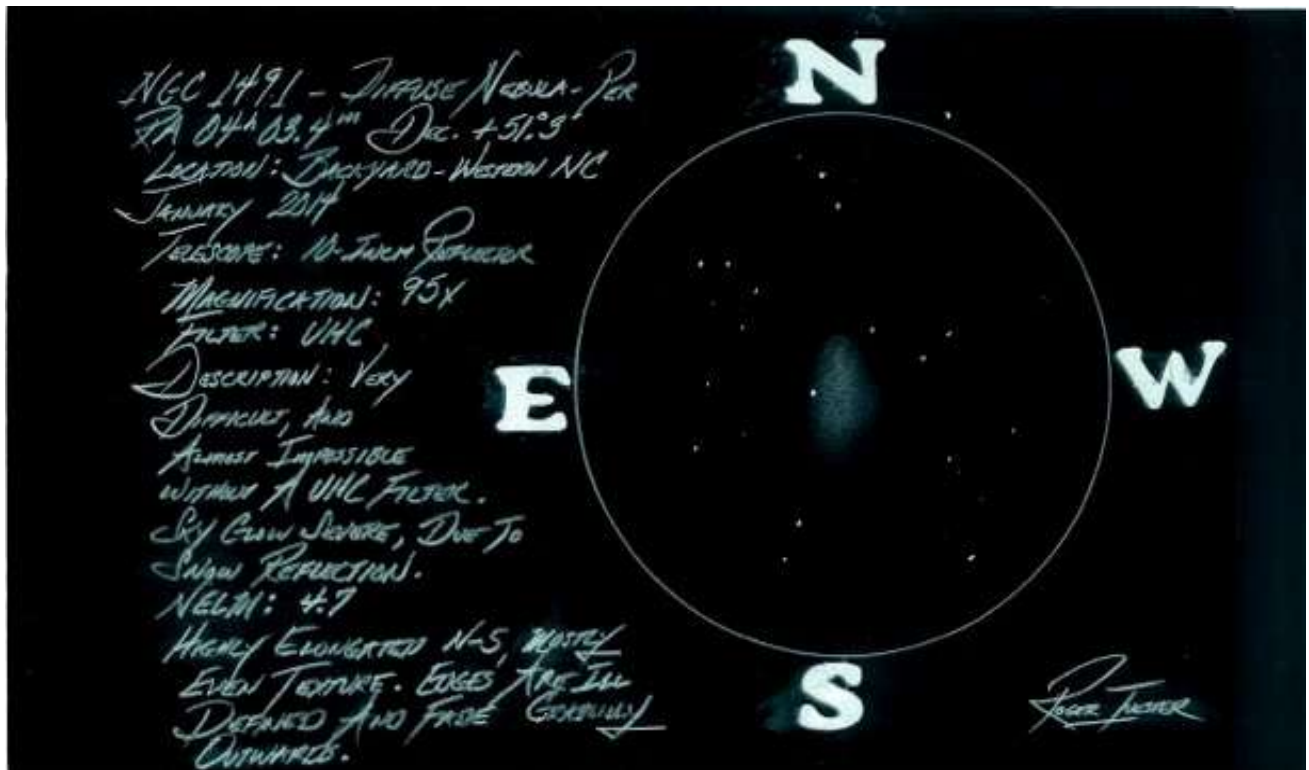 NGC 1491 - DIFFUSE NEBULA - PER
RA 04h 03.4m DEC. +51°.3
LOCATION: BACKYARD - WESTERN NC
JANUARY 2014
TELESCOPE: 10-INCH REFLECTOR
MAGNIFICATION: 95X
FILTER: UHC
DESCRIPTION: VERY
DIFFICULT, AND
ALMOST IMPOSSIBLE
WITHOUT A UHC FILTER.
SKY GLOW SEVERE, DUE TO
SNOW REFLECTION.
NELM: 4.7
HIGHLY ELONGATED N-S, MOSTLY
EVEN TEXTURE. EDGES ARE ILL
DEFINED AND FADE GRADUALLY
OUTWARDS.
N
E
W
S
ROGER